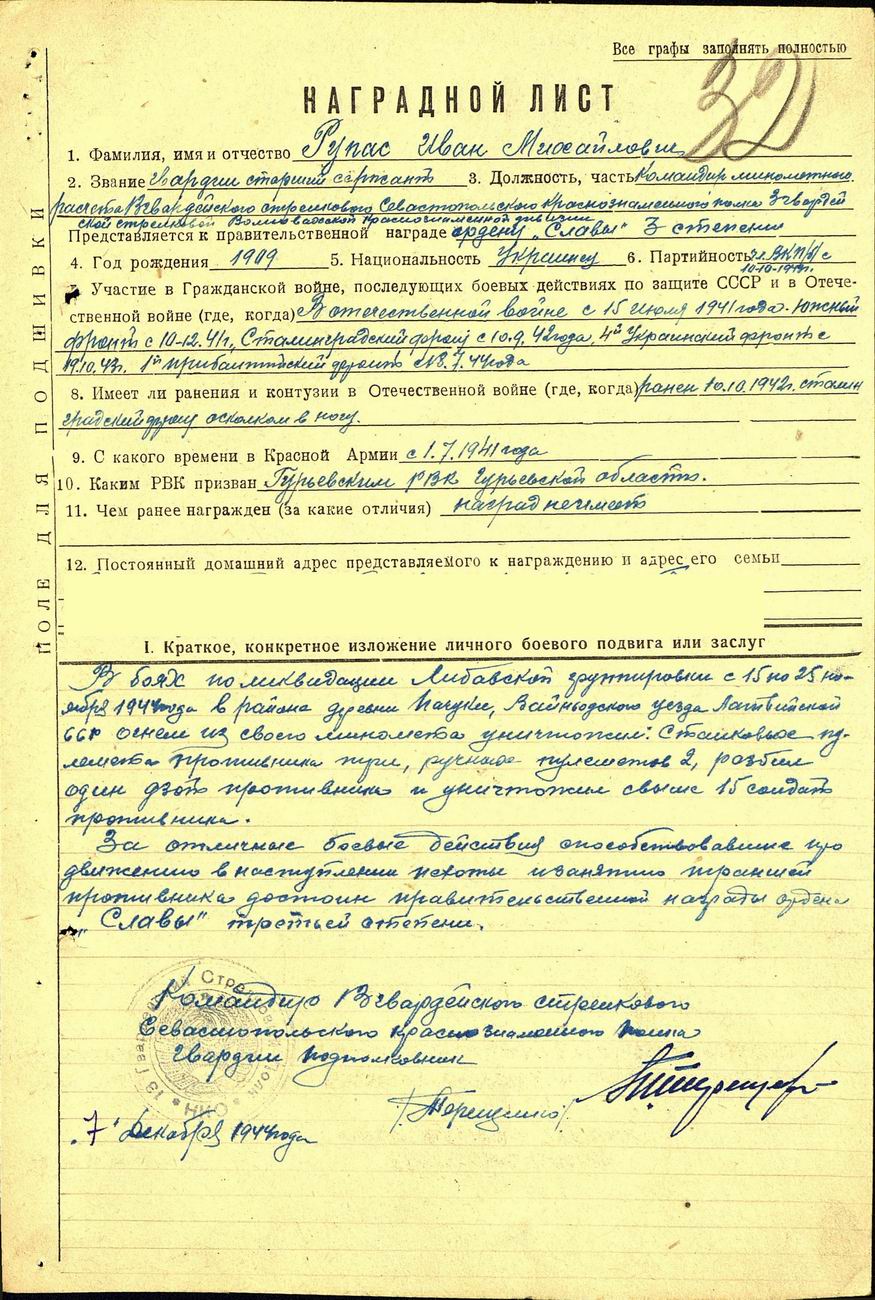 Все графы заполнять полностью
32
НАГРАДНОЙ ЛИСТ
1. Фамилия, имя и отчество Рупас Иван Михайлович
2. Звание Гвардии старший сержант 3. Должность, часть Командир минометного
расчета 13 Гвардейского стрелкового Севастопольского Краснознаменного полка 3 Гвардей
ской стрелковой Волновахской Краснознаменной дивизии
Представляется к правительственной награде ордену „Славы" 3 степени
4. Год рождения 1909 5. Национальность Украинец 6. Партийность чл. ВКП(б) с
7 Участие в Гражданской войне, последующих боевых действиях по защите СССР и в Отече-
ственной войне (где, когда) В отечественной войне с 15 июля 1941 года. Южный
фронт с 10-12.41г., Сталинградский фронт с 10.9.42 года, 4й Украинский фронт с
19.10.43г. 1й прибалтийский фронт с 18.7.44 года
8. Имеет ли ранения и контузии в Отечественной войне (где, когда) ранен 10.10.1942г. сталин
градский фронт осколком в ногу.
9. С какого времени в Красной Армии с 1.7.1941 года
10. Каким РВК призван Гурьевским РВК Гурьевской области.
11. Чем ранее награжден (за какие отличия) наград не имеет
12. Постоянный домашний адрес представляемого к награждению и адрес его семьи
ПОЛЕ ДЛЯ ПОДШИВКИ
I. Краткое, конкретное изложение личного боевого подвига или заслуг
В боях по ликвидации Либавской группировки с 15 по 25 но-
ября 1944 года в районе деревни Вайньодского уезда Латвийской
ССР огнем из своего миномета уничтожил: Станковые пу-
лемета противника три, ручных пулеметов 2, разбил
один дзот противника и уничтожил свыше 15 солдат
противника.
За отличные боевые действия способствовавшие про
движению в наступлении пехоты и занятию траншей
противника достоин правительственной награды ордена
„Славы" третьей степени.
Командир 13 Гвардейского стрелкового
Севастопольского краснознаменного полка
Гвардии подполковник
/Терещенко/
„7" декабря 1944 года
13 Гвардейский Стрелковый Полк * НКО *